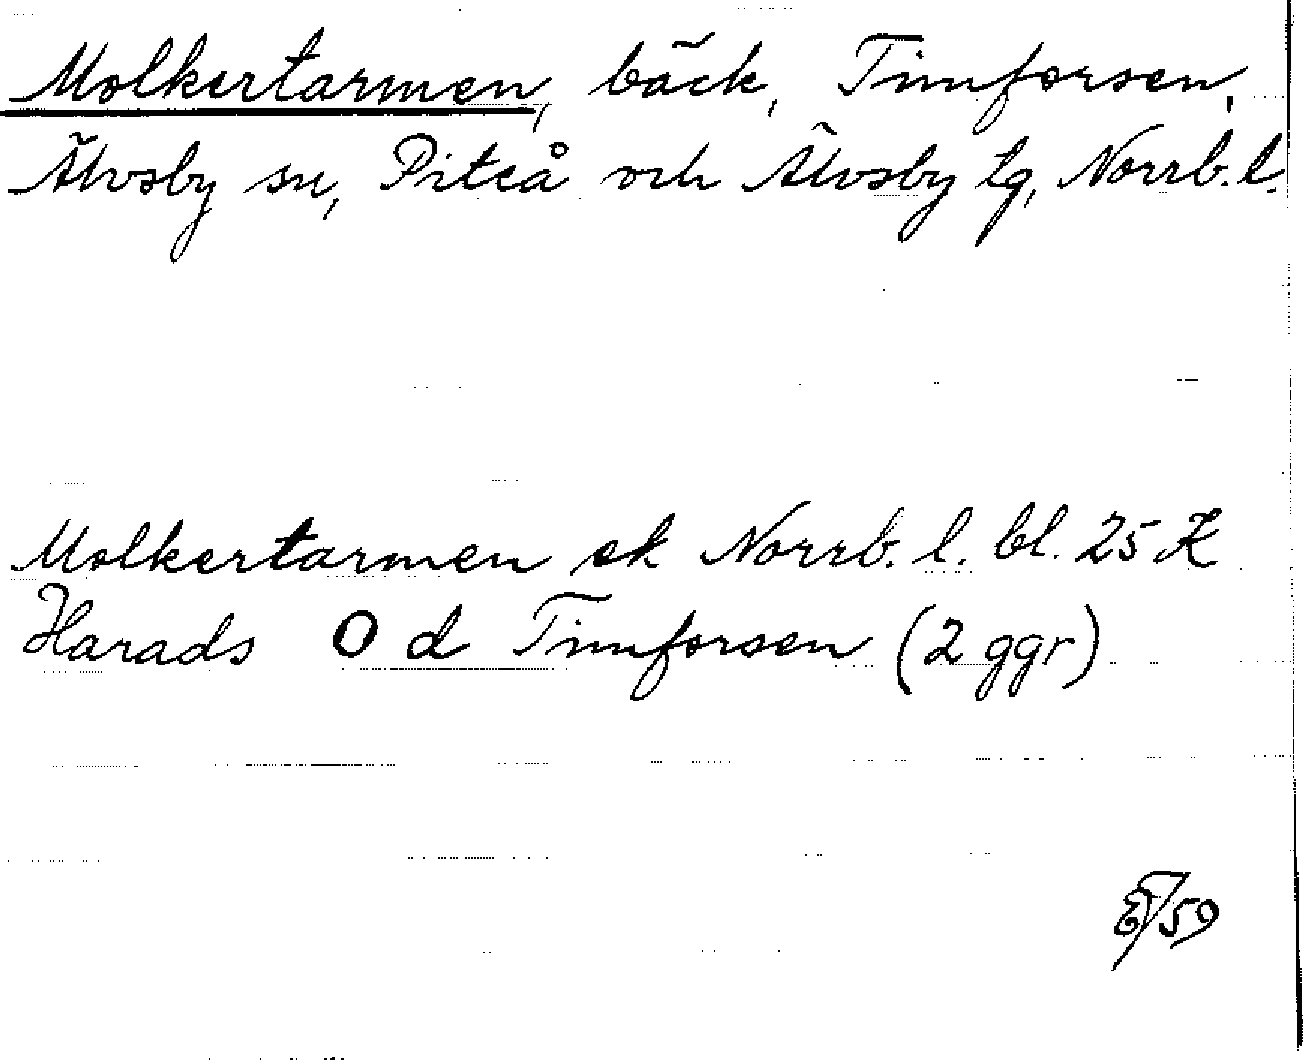 Molkertarmen, bäck, Timforsen,
Älvsby sn, Piteå och Älvsby tg, Norrb. l.
Molkertarmen ek Norrb. l. bl. 25 K
Harads O d Timforsen (2 ggr)
/59